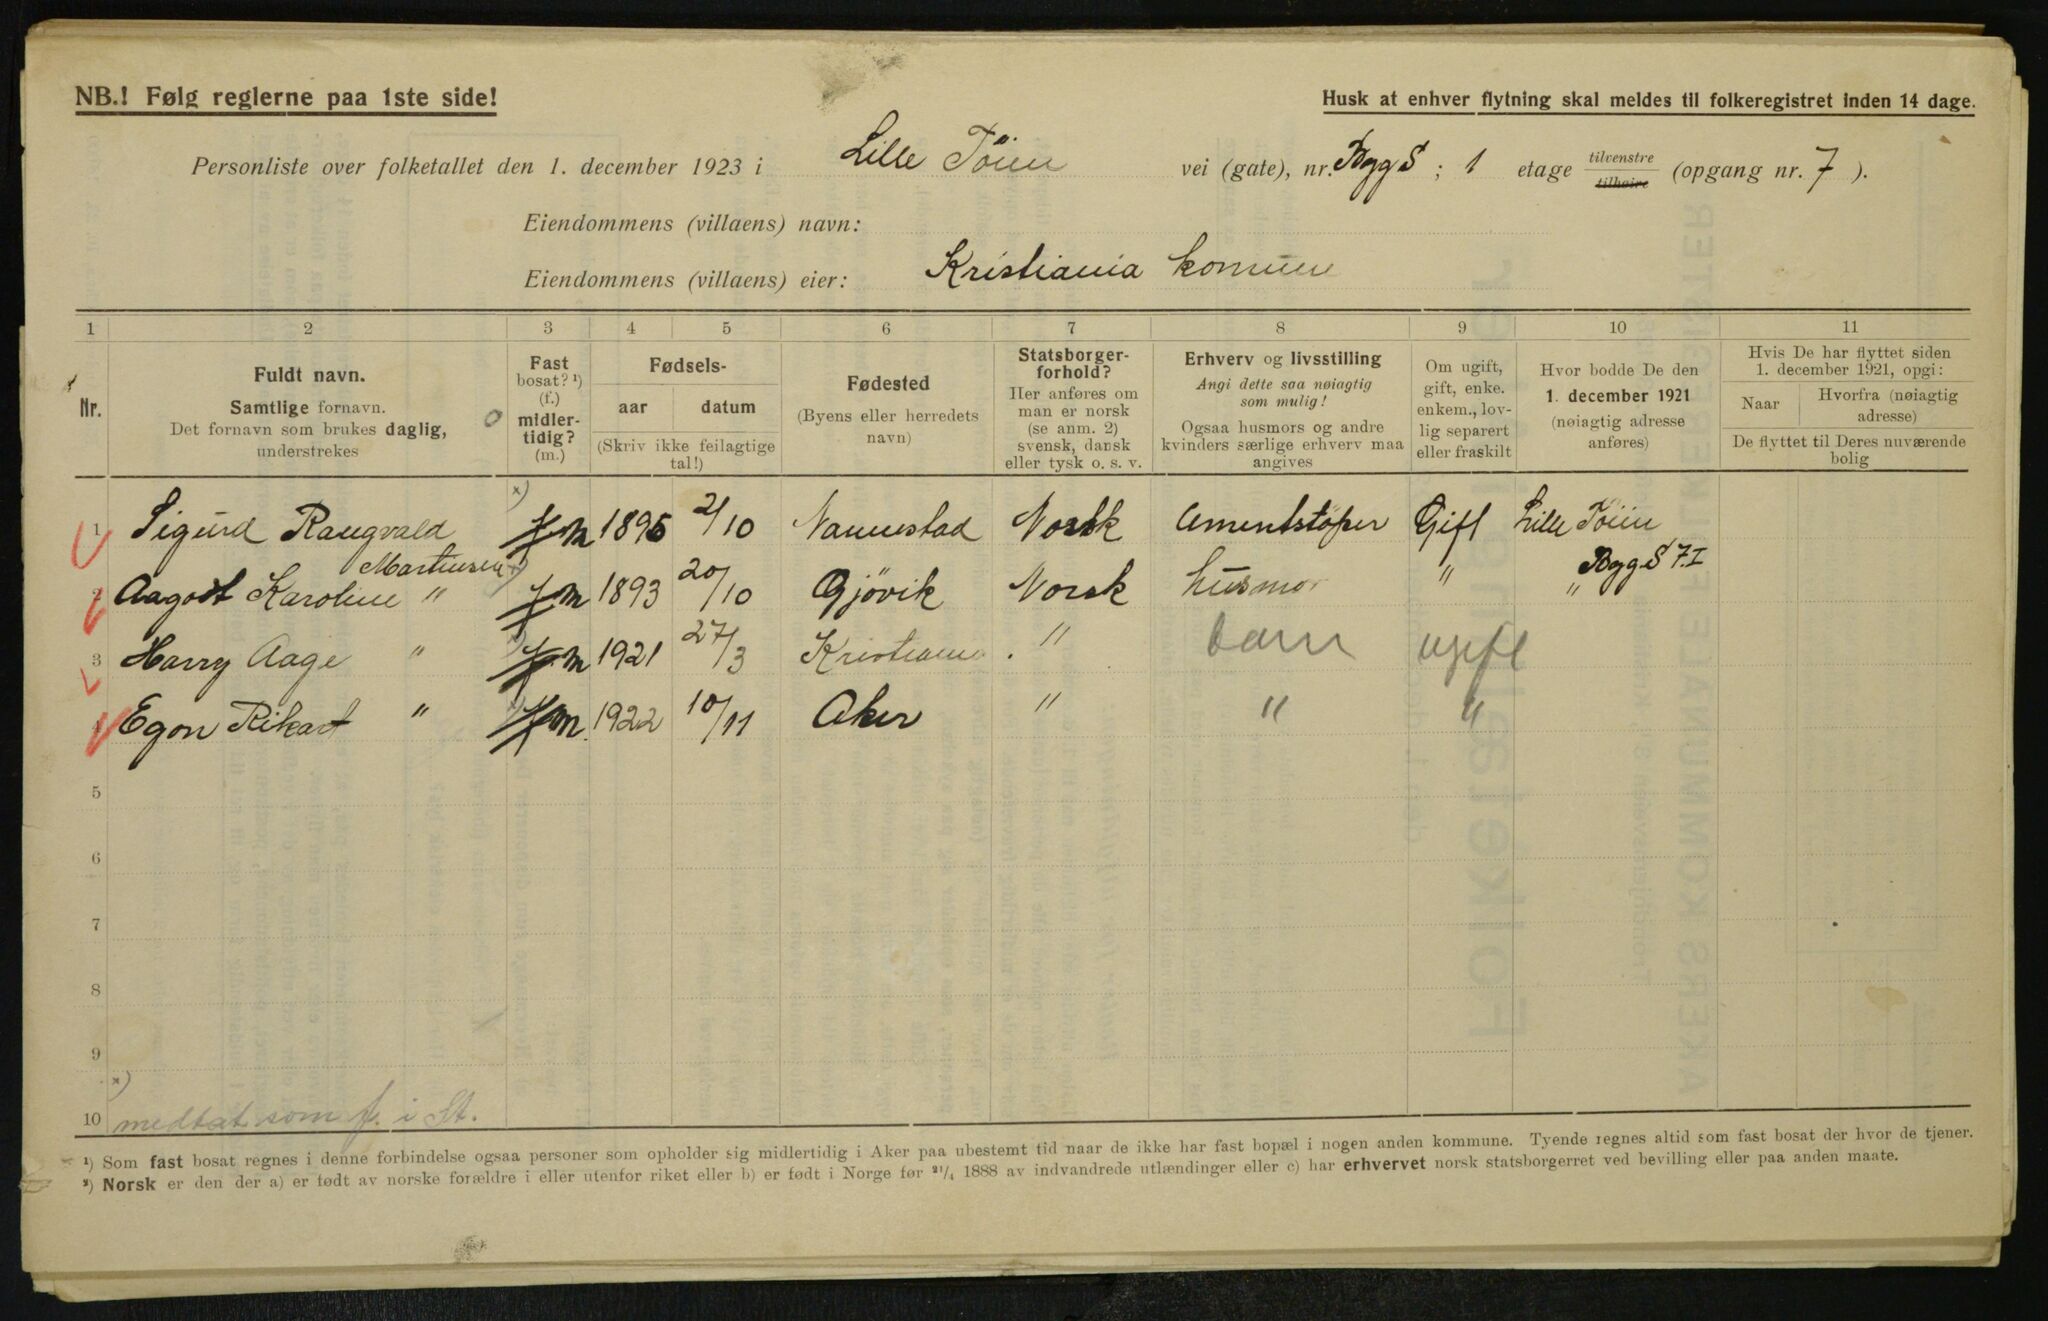 NB.! Følg reglerne paa 1ste side!
Husk at enhver flytning skal meldes til folkeregistret inden 14 dage.
Personliste over folketallet den 1. december 1923 i Lille Töien vei (gate), nr. Bygg S ; 1 etage tilvenstre tilhøire (opgang nr. 7 ).
Eiendommens (villaens) navn:
Eiendommens (villaens) eier: Kristiania komune
1 2 3 4 5 6 7 8 9 10 11
Nr.
Fuldt navn.
Samtlige fornavn.
Det fornavn som brukes daglig,
understrekes
Fast
bosat? ¹)
(f.)
midler-
tidig?
(m.)
Fødsels-
aar datum
(Skriv ikke feilagtige
tal!)
Fødested
(Byens eller herredets
navn)
Statsborger-
forhold?
Her anføres om
man er norsk
(se anm. 2)
svensk, dansk
eller tysk o. s. v.
Erhverv og livsstilling
Angi dette saa nøiagtig
som mulig!
Ogsaa husmors og andre
kvinders særlige erhverv maa
angives
Om ugift,
gift, enke.
enkem., lov-
lig separert
eller fraskilt
Hvor bodde De den
1. december 1921
(nøiagtig adresse
anføres)
Hvis De har flyttet siden
1. december 1921, opgi:
Naar
Hvorfra (nøiagtig
adresse)
De flyttet til Deres nuværende
bolig
1 Sigurd Rangvald Martinsen x) f m 1895 2/10 Nannestad Norsk Cmentstöper Gift Lille Töien
Bygg S 7. I
2 Aagodt Karoline " f m 1893 20/10 Gjövik Norsk husmor " "
3 Harry Aage " f m 1921 27/3 Kristiania " barn ugift
4 Egon Rikart " f m 1922 10/11 Aker " " "
5
6
7
8
9
x)
10 medtat som f. i St.
¹) Som fast bosat regnes i denne forbindelse ogsaa personer som opholder sig midlertidig i Aker paa ubestemt tid naar de ikke har fast bopæl i nogen anden kommune. Tyende regnes altid som fast bosat der hvor de tjener.
²) Norsk er den der a) er født av norske forældre i eller utenfor riket eller b) er født i Norge før ²¹/₄ 1888 av indvandrede utlændinger eller c) har erhvervet norsk statsborgerret ved bevilling eller paa anden maate.